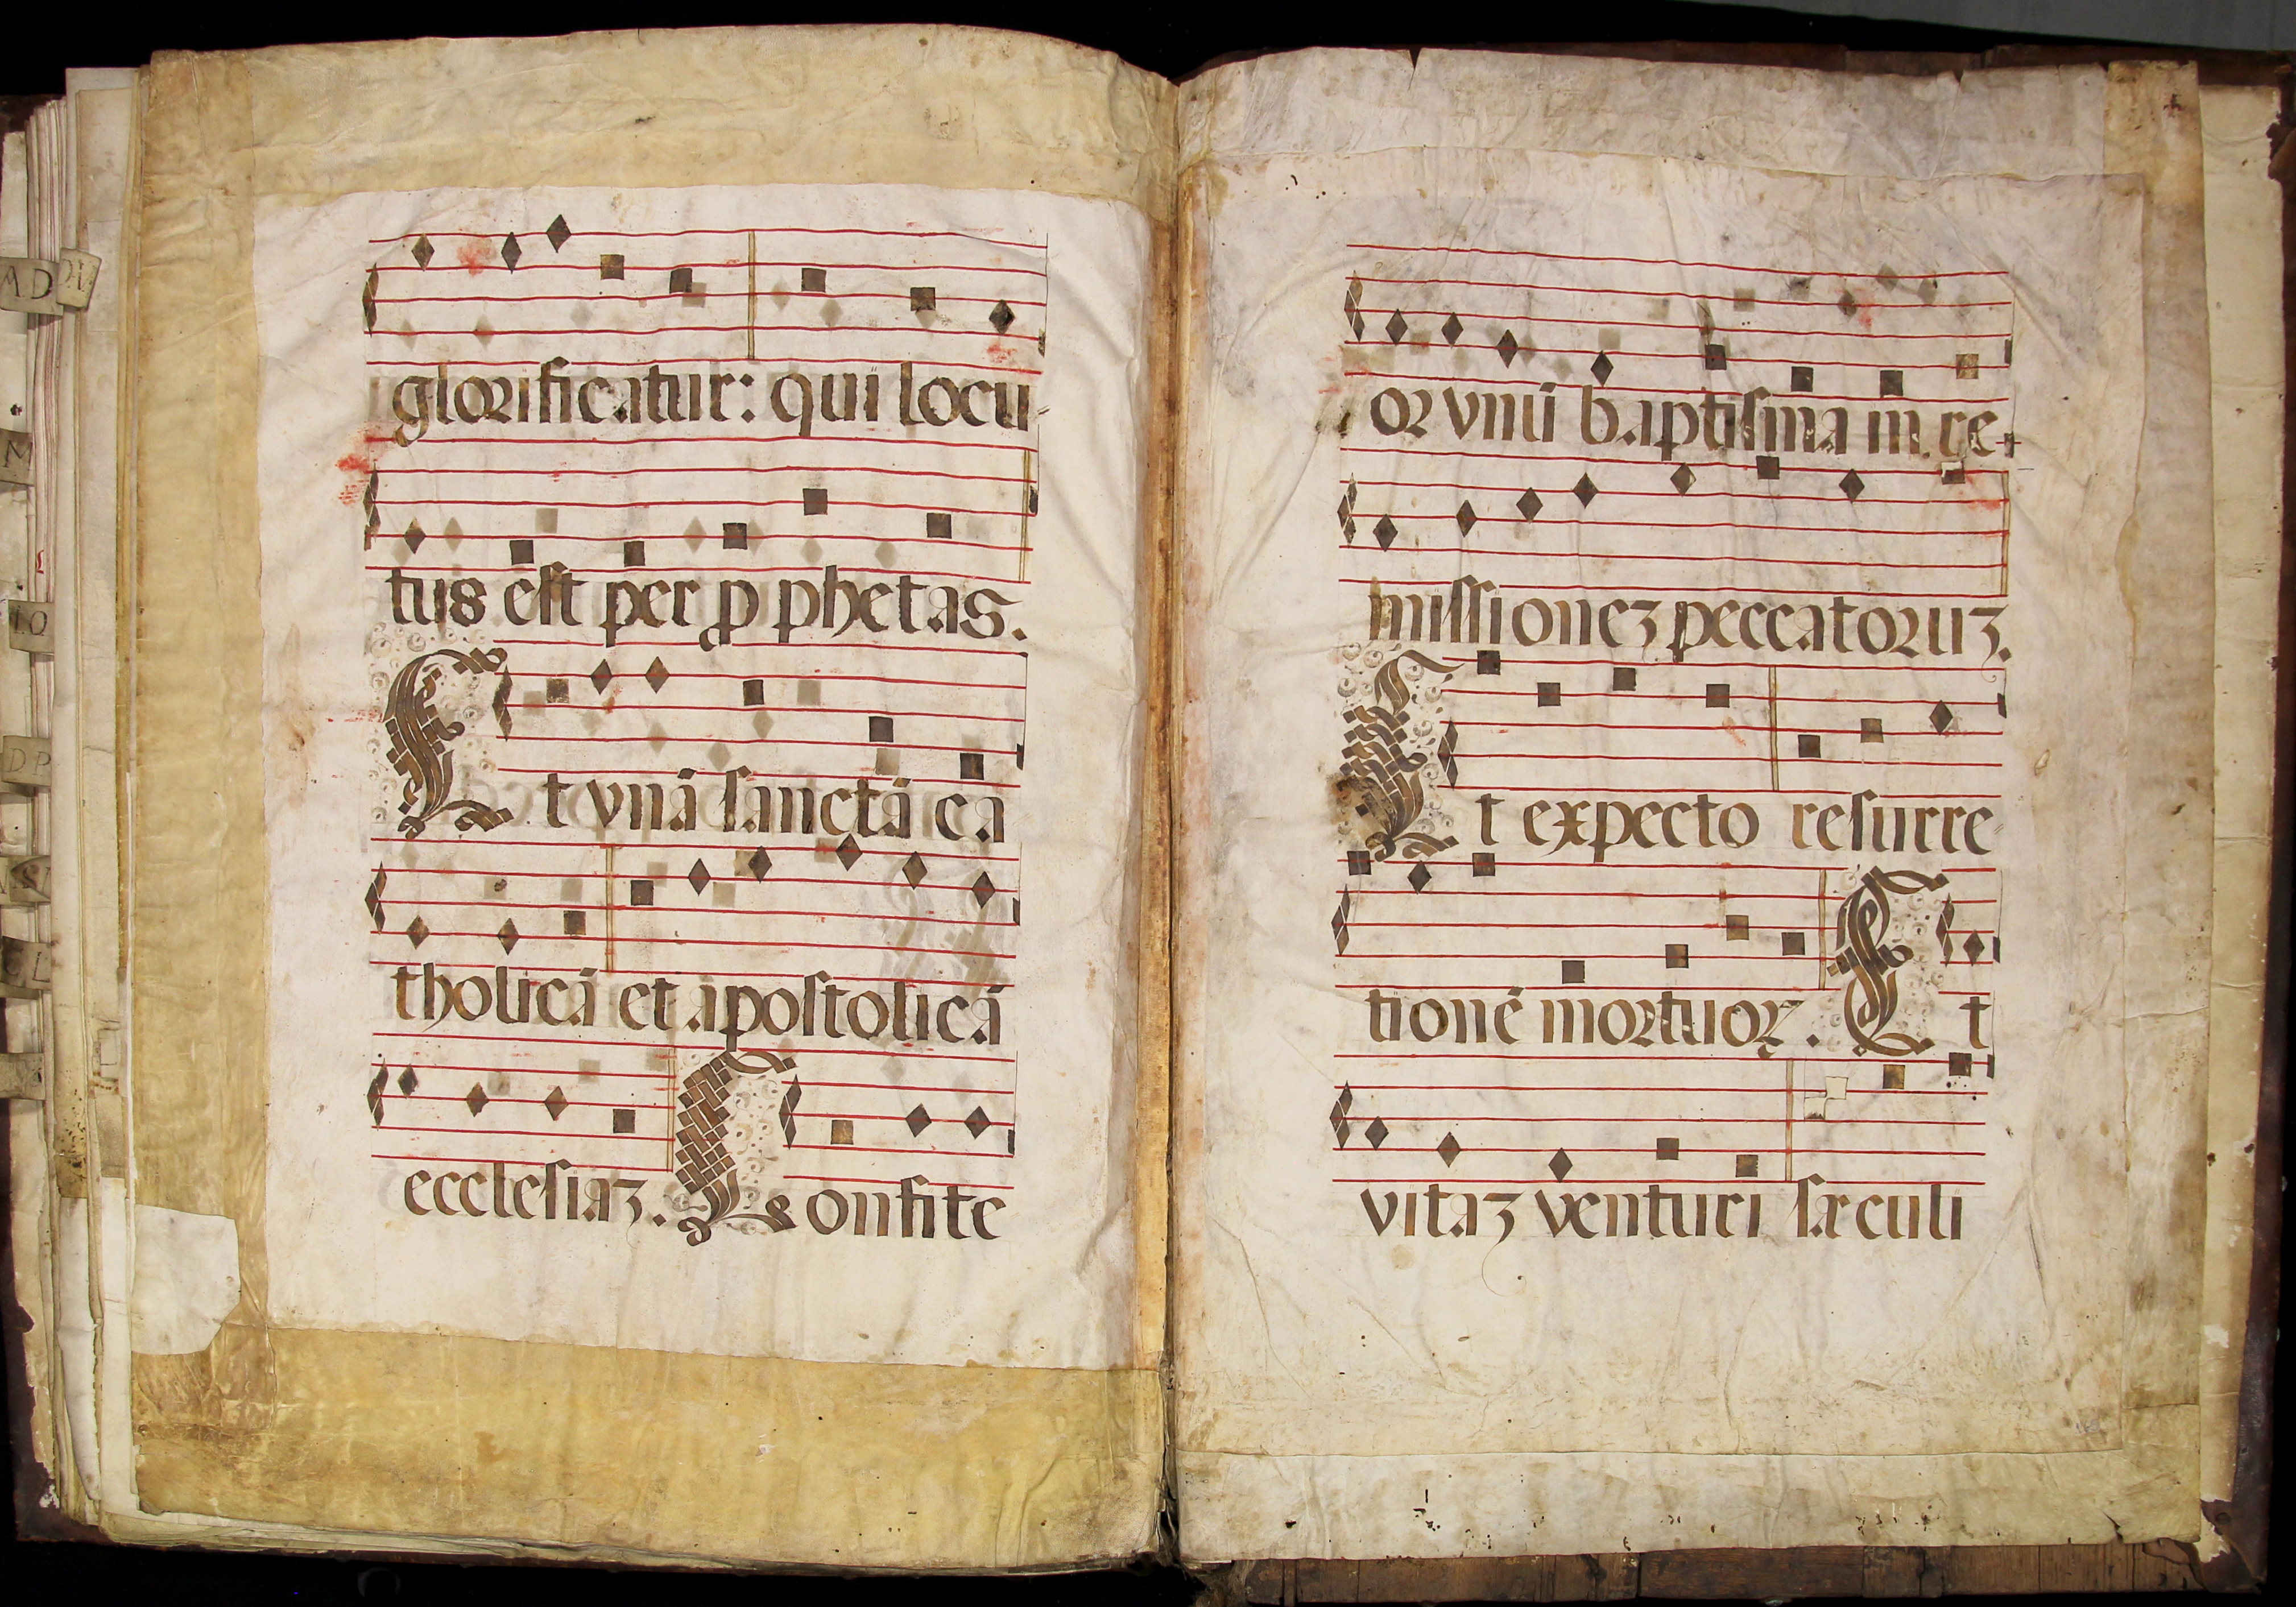 glorificatur: qui locu-
tus est per ꝓ phetas.
Et vnā sanctā ca
tholicā et apostolicā
ecclesiaꝫ. Confite
or vnū baptisma in re-
missioneꝫ peccatoruꝫ.
Et expecto resurre
tionē mortuoꝝ. Et
vitaꝫ venturi sæculi
MAD
M
LO
DP